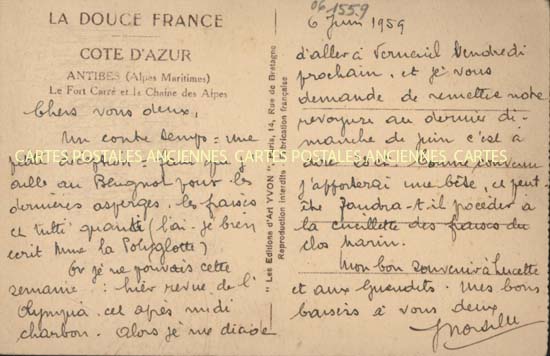 LA DOUCE FRANCE
COTE D'AZUR
ANTIBES (Alpes Maritimes)
Le Fort Carré et la Chaine des Alpes
Chers vous deux,
Un contre temps = une
aille au pour les
dernières asperges, les fraises
et tutti quanti (l'ai-je bien
écrit Mme la Polyglotte)
Or je ne pouvais cette
semaine : hier revue de l'
Olympia, cet après midi
charbon. Alors je me décide
"Les Editions d'Art YVON", Paris, 14, Rue de Bretagne
Reproduction interdite - Fabrication française
06 1559
6 Juin 1959
d'aller à Verneuil Vendredi
prochain, et je vous
demande de remettre notre
revoyure au dernier di-
manche de juin c'est à
dire Comme convenu
j'apporterai une bête, et peut
être faudra-t-il procéder à
la cueillette des fraises du
clos Marin.
Mon bon souvenir à Lucette
et aux Mes bons
baisers à vous deux
CARTES POSTALES ANCIENNES. CARTES POSTALES ANCIENNES. CARTES POSTALES ANCIENNES